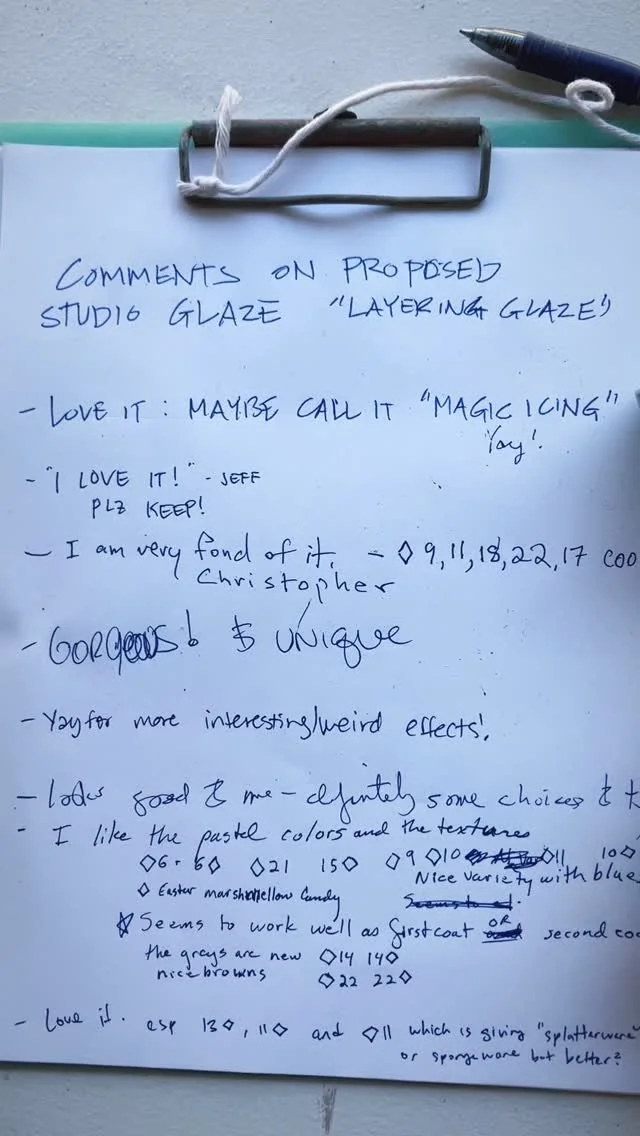 COMMENTS ON PROPOSED
STUDIO GLAZE "LAYERING GLAZE"
- LOVE IT: MAYBE CALL IT "MAGIC ICING"
Yay!
- "I LOVE IT!" - JEFF
PLZ KEEP!
- I am very fond of it. - ◇ 9, 11, 18, 22, 17 coo
Christopher
- GORGEOUS! & UNIQUE
- Yay for more interesting/weird effects!
- looks good to me - definitely some choices to t
- I like the pastel colors and the textures
◇6 - 6◇ ◇21 15◇ ◇9 ◇10 ◇11 10◇
Nice variety with blue
◇ Easter marshmellow candy
Seems to work well as first coat OR second coa
the greys are new ◇14 14◇
nice browns ◇22 22◇
- Love it. esp 13◇, 11◇ and ◇11 which is giving "splatterware"
or spongeware but better?